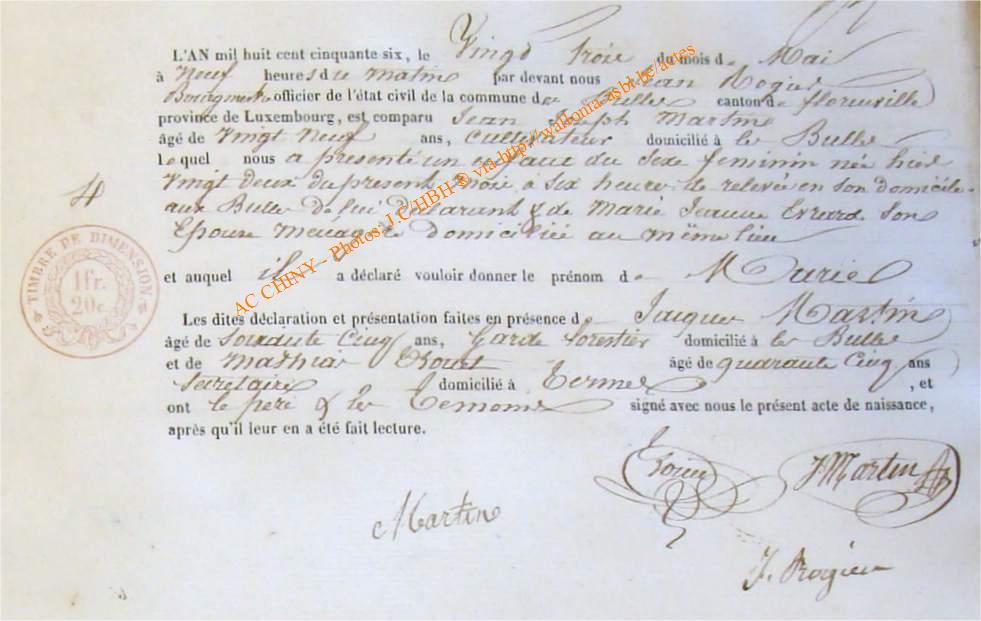 L'AN mil huit cent cinquante six, le Vingt trois du mois de Mai
à Neuf heures du matin par devant nous Jean Rogier
Bourgmestre officier de l'état civil de la commune de canton de florenville
province de Luxembourg, est comparu Jean Joseph Martin
âgé de Vingt Neuf ans, Cultivateur domicilié à les Bulles
Lequel nous a présenté un enfant du Sexe feminin née hier
Vingt deux du present mois, à Six heures de relevée en son domicile
aux Bulles de lui déclarant & de Marie Jeanne Evrard son
Epouse Menagère domiciliée au même lieu
et auquel il a déclaré vouloir donner le prénom de Marie
Les dites déclaration et présentation faites en présence de Jacques Martin
âgé de Soixante Cinq ans, Garde forestier domicilié à les Bulles
et de Mathias âgé de quarante Cinq ans
Secretaire domicilié à Termes , et
ont le pere & les Temoins signé avec nous le présent acte de naissance,
après qu'il leur en a été fait lecture.
4
TIMBRE DE DIMENSION
1fr.
20c.
JMartin
Martin
J. Rogier
AC CHINY – Photos J.C HBH ® via http://wallonia-asbl.be/actes